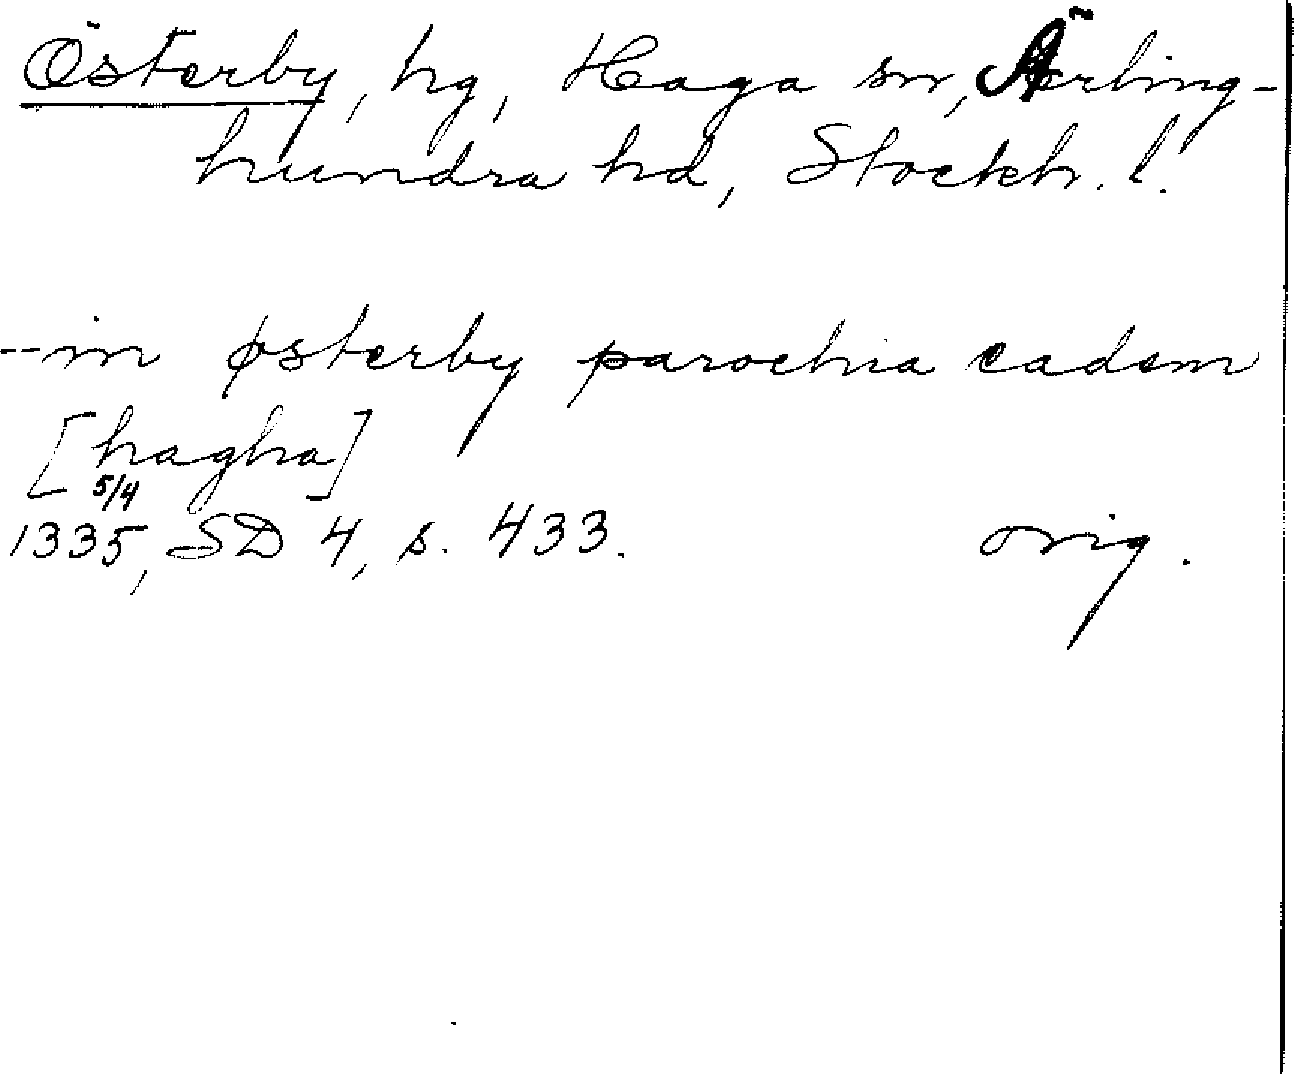 Österby, hg, Haga sn, Ärling-
hundra hd, Stockh. l.
--in østerby parochia eadem
[hagha]
5/4
1335, SD 4, s. 433. orig.